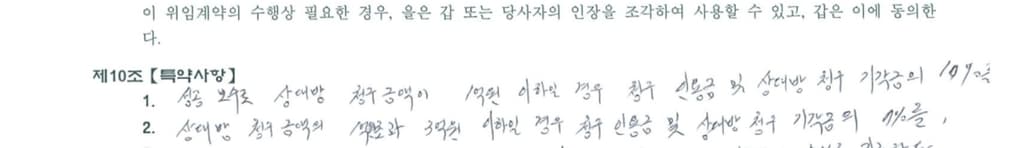 이 위임계약의 수행상 필요한 경우, 을은 갑 또는 당사자의 인장을 조각하여 사용할 수 있고, 갑은 이에 동의한
다.
제10조【특약사항】
1. 성공 보수로 상대방 청구금액이 1억원 이하일 경우 청구 인용금 및 상대방 청구 기각금의 10%를
2. 상대방 청구금액의 3억원 이하일 경우 청구 인용금 및 상대방 청구 기각금의 7%를,